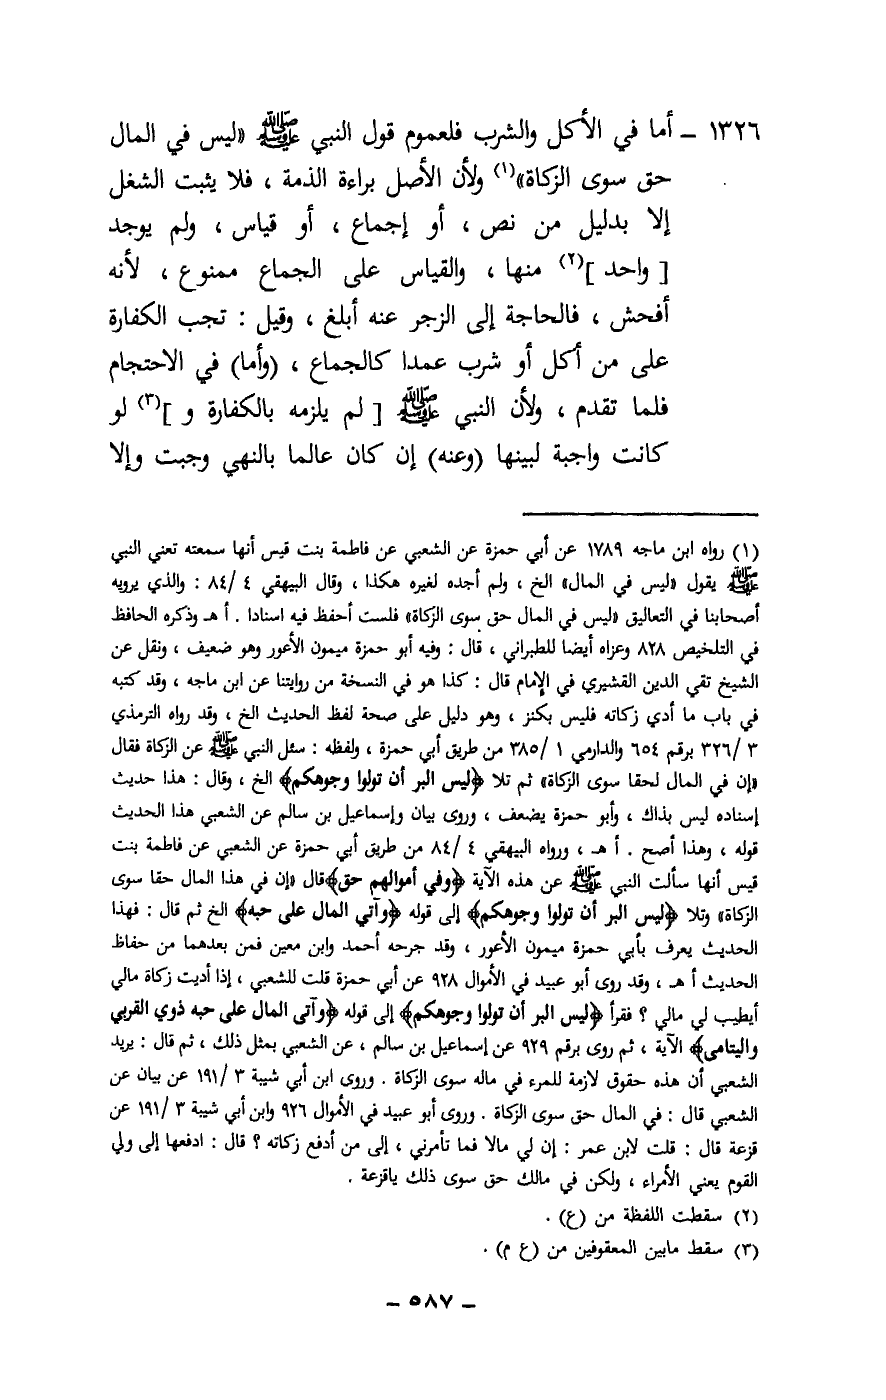 ١٣٢٦ ـ أما في الأكل والشرب فلعموم قول النبي ﷺ «ليس في المال
حق سوى الزكاة»(١) ولأن الأصل براءة الذمة ، فلا يثبت الشغل
إلا بدليل من نص ، أو إجماع ، أو قياس ، ولم يوجد
[ واحد ](٢) منها ، والقياس على الجماع ممنوع ، لأنه
أفحش ، فالحاجة إلى الزجر عنه أبلغ ، وقيل : تجب الكفارة
على من أكل أو شرب عمدا كالجماع ، (وأما) في الاحتجام
فلما تقدم ، ولأن النبي ﷺ [ لم يلزمه بالكفارة و ](٣) لو
كانت واجبة لبينها (وعنه) إن كان عالما بالنهي وجبت وإلا
(١) رواه ابن ماجه ١٧٨٩ عن أبي حمزة عن الشعبي عن فاطمة بنت قيس أنها سمعته تعني النبي
ﷺ يقول «ليس في المال» الخ ، ولم أجده لغيره هكذا ، وقال البيهقي ٤ /٨٤ : والذي يرويه
أصحابنا في التعاليق «ليس في المال حق سوى الزكاة» فلست أحفظ فيه اسنادا . أ هـ وذكره الحافظ
في التلخيص ٨٢٨ وعزاه أيضا للطبراني ، قال : وفيه أبو حمزة ميمون الأعور وهو ضعيف ، ونقل عن
الشيخ تقي الدين القشيري في الإمام قال : كذا هو في النسخة من روايتنا عن ابن ماجه ، وقد كتبه
في باب ما أدي زكاته فليس بكنز ، وهو دليل على صحة لفظ الحديث الخ ، وقد رواه الترمذي
٣ /٣٢٦ برقم ٦٥٤ والدارمي ١ /٣٨٥ من طريق أبي حمزة ، ولفظه : سئل النبي ﷺ عن الزكاة فقال
«إن في المال لحقا سوى الزكاة» ثم تلا ﴿ليس البر أن تولوا وجوهكم﴾ الخ ، وقال : هذا حديث
إسناده ليس بذاك ، وأبو حمزة يضعف ، وروى بيان وإسماعيل بن سالم عن الشعبي هذا الحديث
قوله ، وهذا أصح . أ هـ ، ورواه البيهقي ٤ /٨٤ من طريق أبي حمزة عن الشعبي عن فاطمة بنت
قيس أنها سألت النبي ﷺ عن هذه الآية ﴿وفي أموالهم حق﴾قال «إن في هذا المال حقا سوى
الزكاة» وتلا ﴿ليس البر أن تولوا وجوهكم﴾ إلى قوله ﴿وآتي المال على حبه﴾ الخ ثم قال : فهذا
الحديث يعرف بأبي حمزة ميمون الأعور ، وقد جرحه أحمد وابن معين فمن بعدهما من حفاظ
الحديث أ هـ ، وقد روى أبو عبيد في الأموال ٩٢٨ عن أبي حمزة قلت للشعبي ، إذا أديت زكاة مالي
أيطيب لي مالي ؟ فقرأ ﴿ليس البر أن تولوا وجوهكم﴾ إلى قوله ﴿وآتى المال على حبه ذوي القربي
واليتامى﴾ الآية ، ثم روى برقم ٩٢٩ عن إسماعيل بن سالم ، عن الشعبي بمثل ذلك ، ثم قال : يريد
الشعبي أن هذه حقوق لازمة للمرء في ماله سوى الزكاة . وروى ابن أبي شيبة ٣ /١٩١ عن بيان عن
الشعبي قال : في المال حق سوى الزكاة . وروى أبو عبيد في الأموال ٩٢٦ وابن أبي شيبة ٣ /١٩١ عن
قزعة قال : قلت لابن عمر : إن لي مالا فما تأمرني ، إلى من أدفع زكاته ؟ قال : ادفعها إلى ولي
القوم يعني الأمراء ، ولكن في مالك حق سوى ذلك ياقزعة .
(٢) سقطت اللفظة من (ع) .
(٣) سقط مابين المعقوفين من (ع م) .
ـ ٥٨٧ ـ